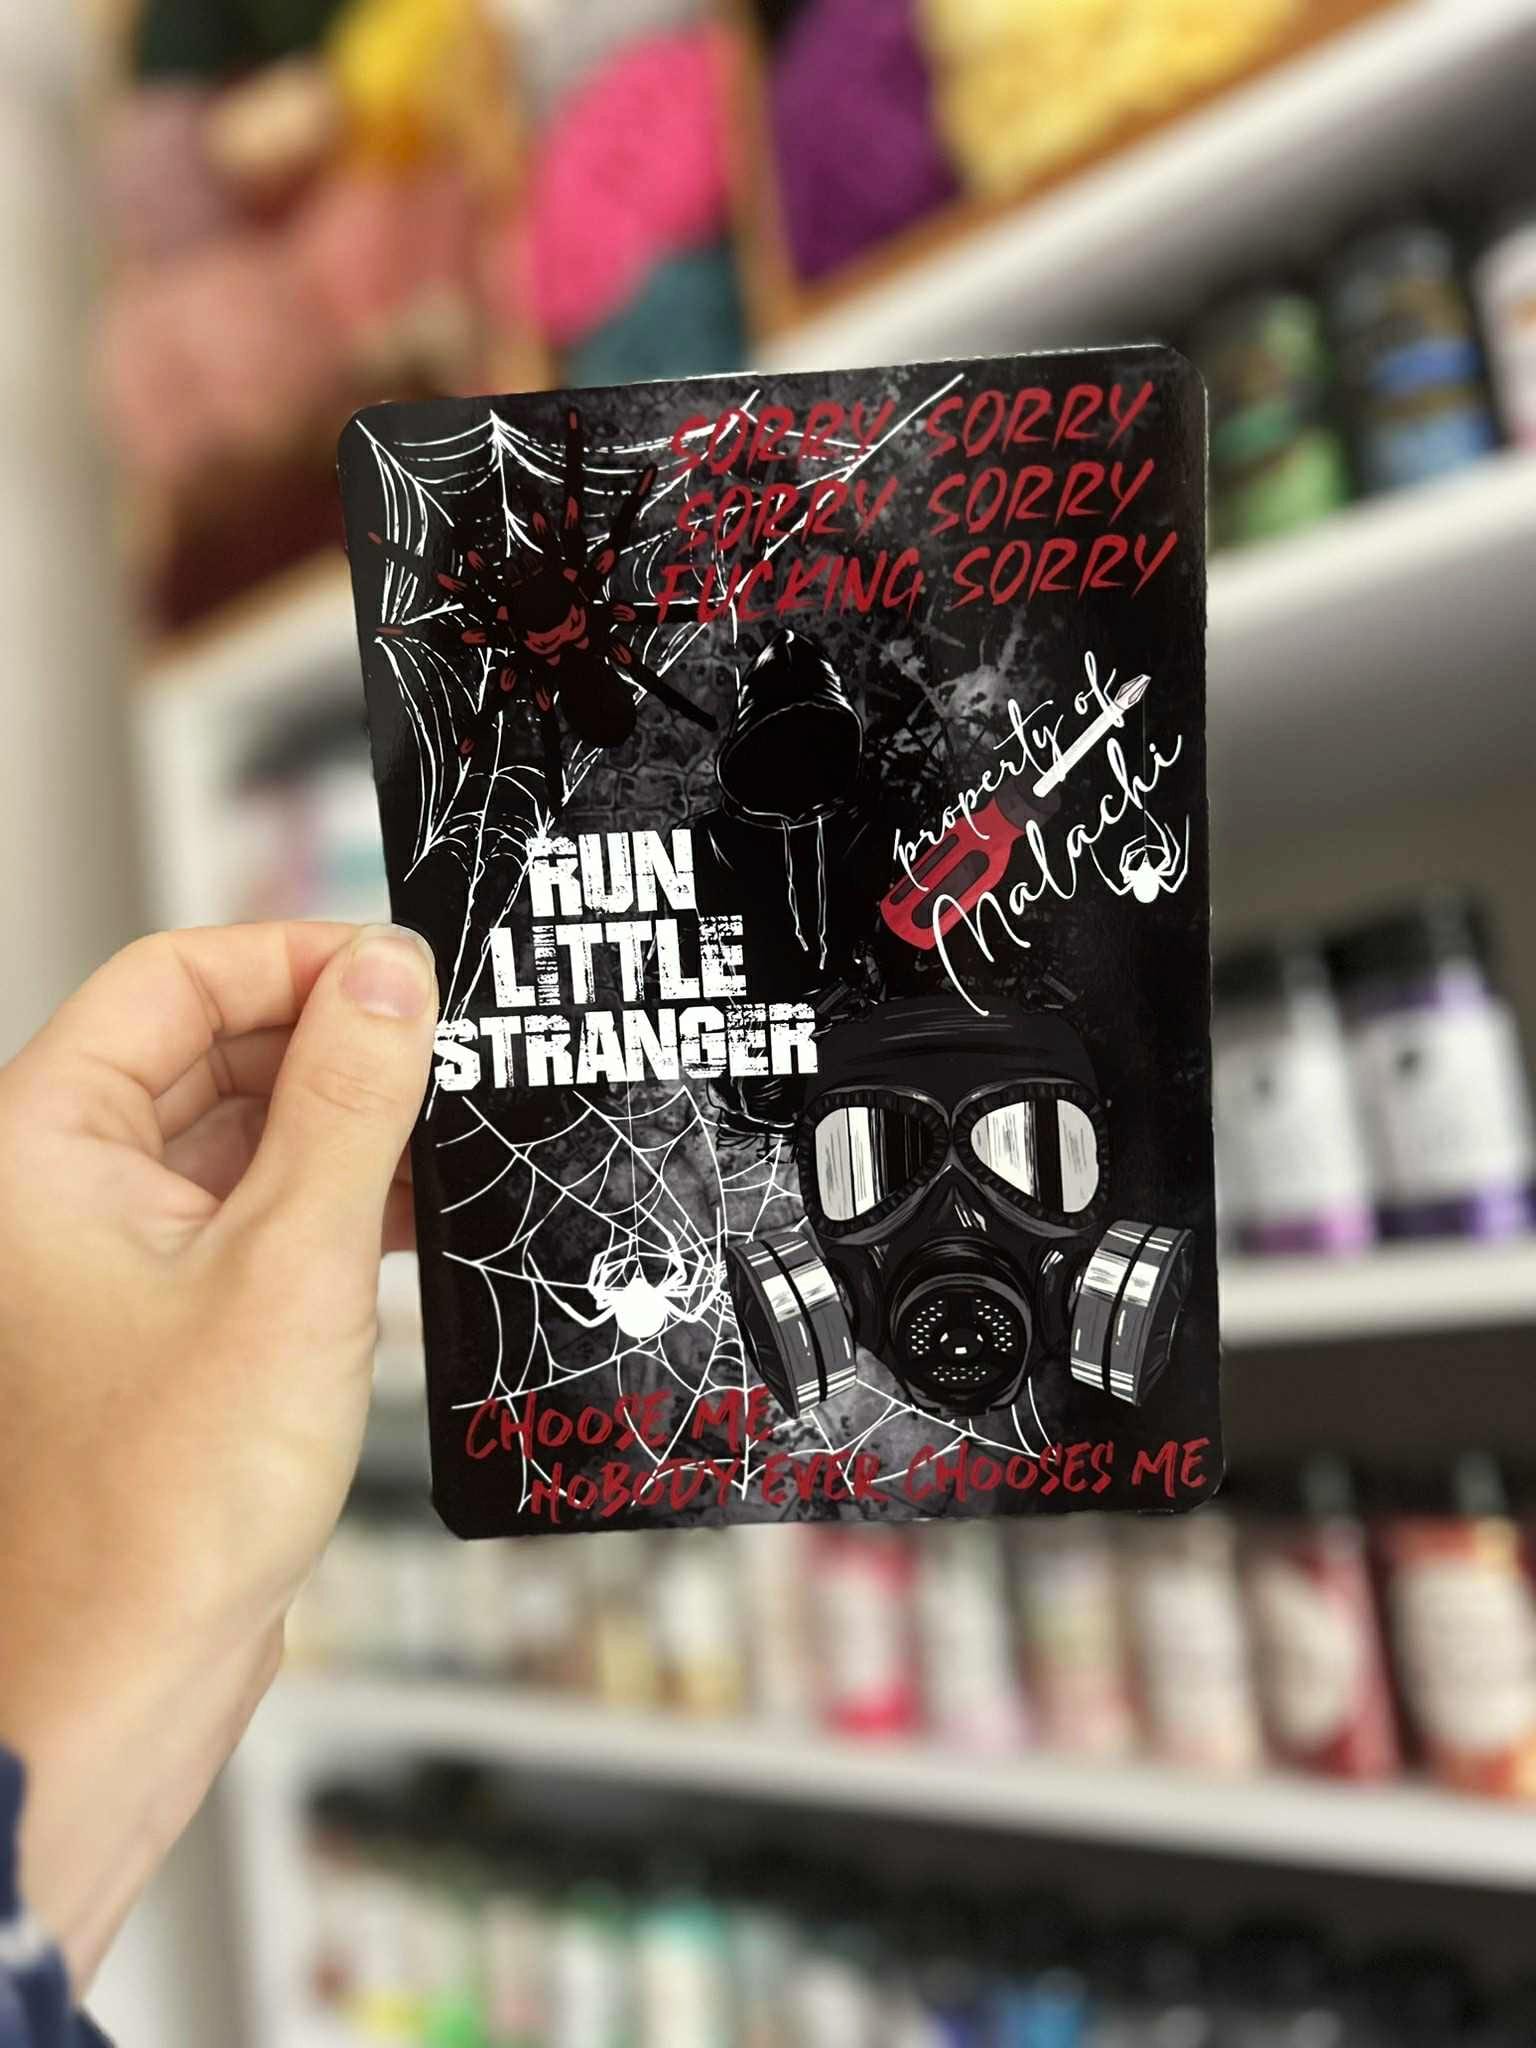 SORRY SORRY
SORRY SORRY
FUCKING SORRY
property of
Malachi
RUN
LITTLE
STRANGER
CHOOSE ME
NOBODY EVER CHOOSES ME